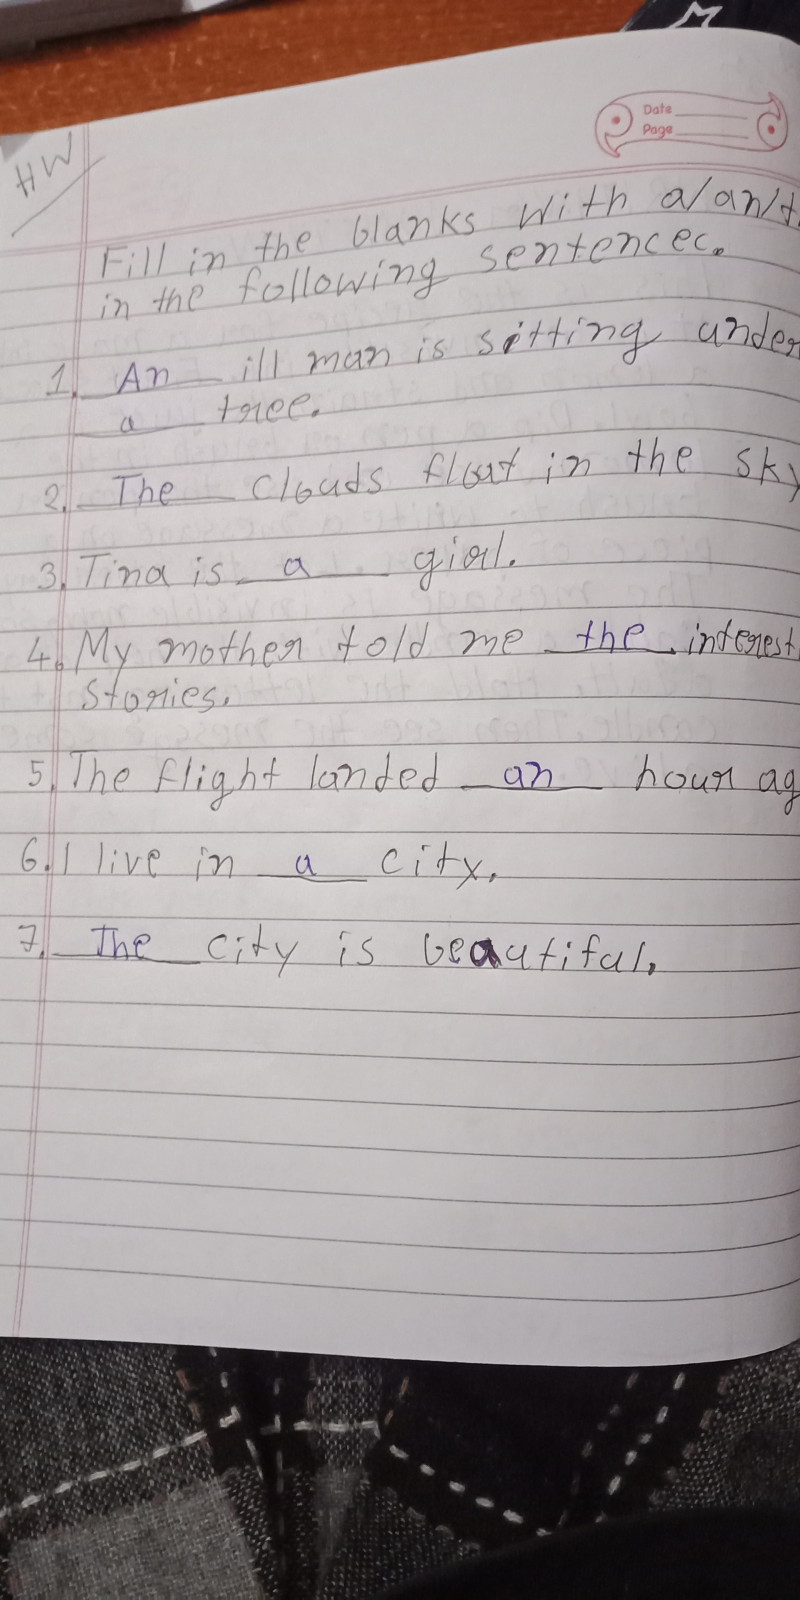 Date
Page
HW
Fill in the blanks with a/an/t
in the following sentencec.
1. An ill man is sitting under
a tree.
2. The clouds float in the sky
3. Tina is a girl.
4. My mother told me the interest
stories.
5. The flight landed an hour ag
6. I live in a city.
7. The city is beautiful.